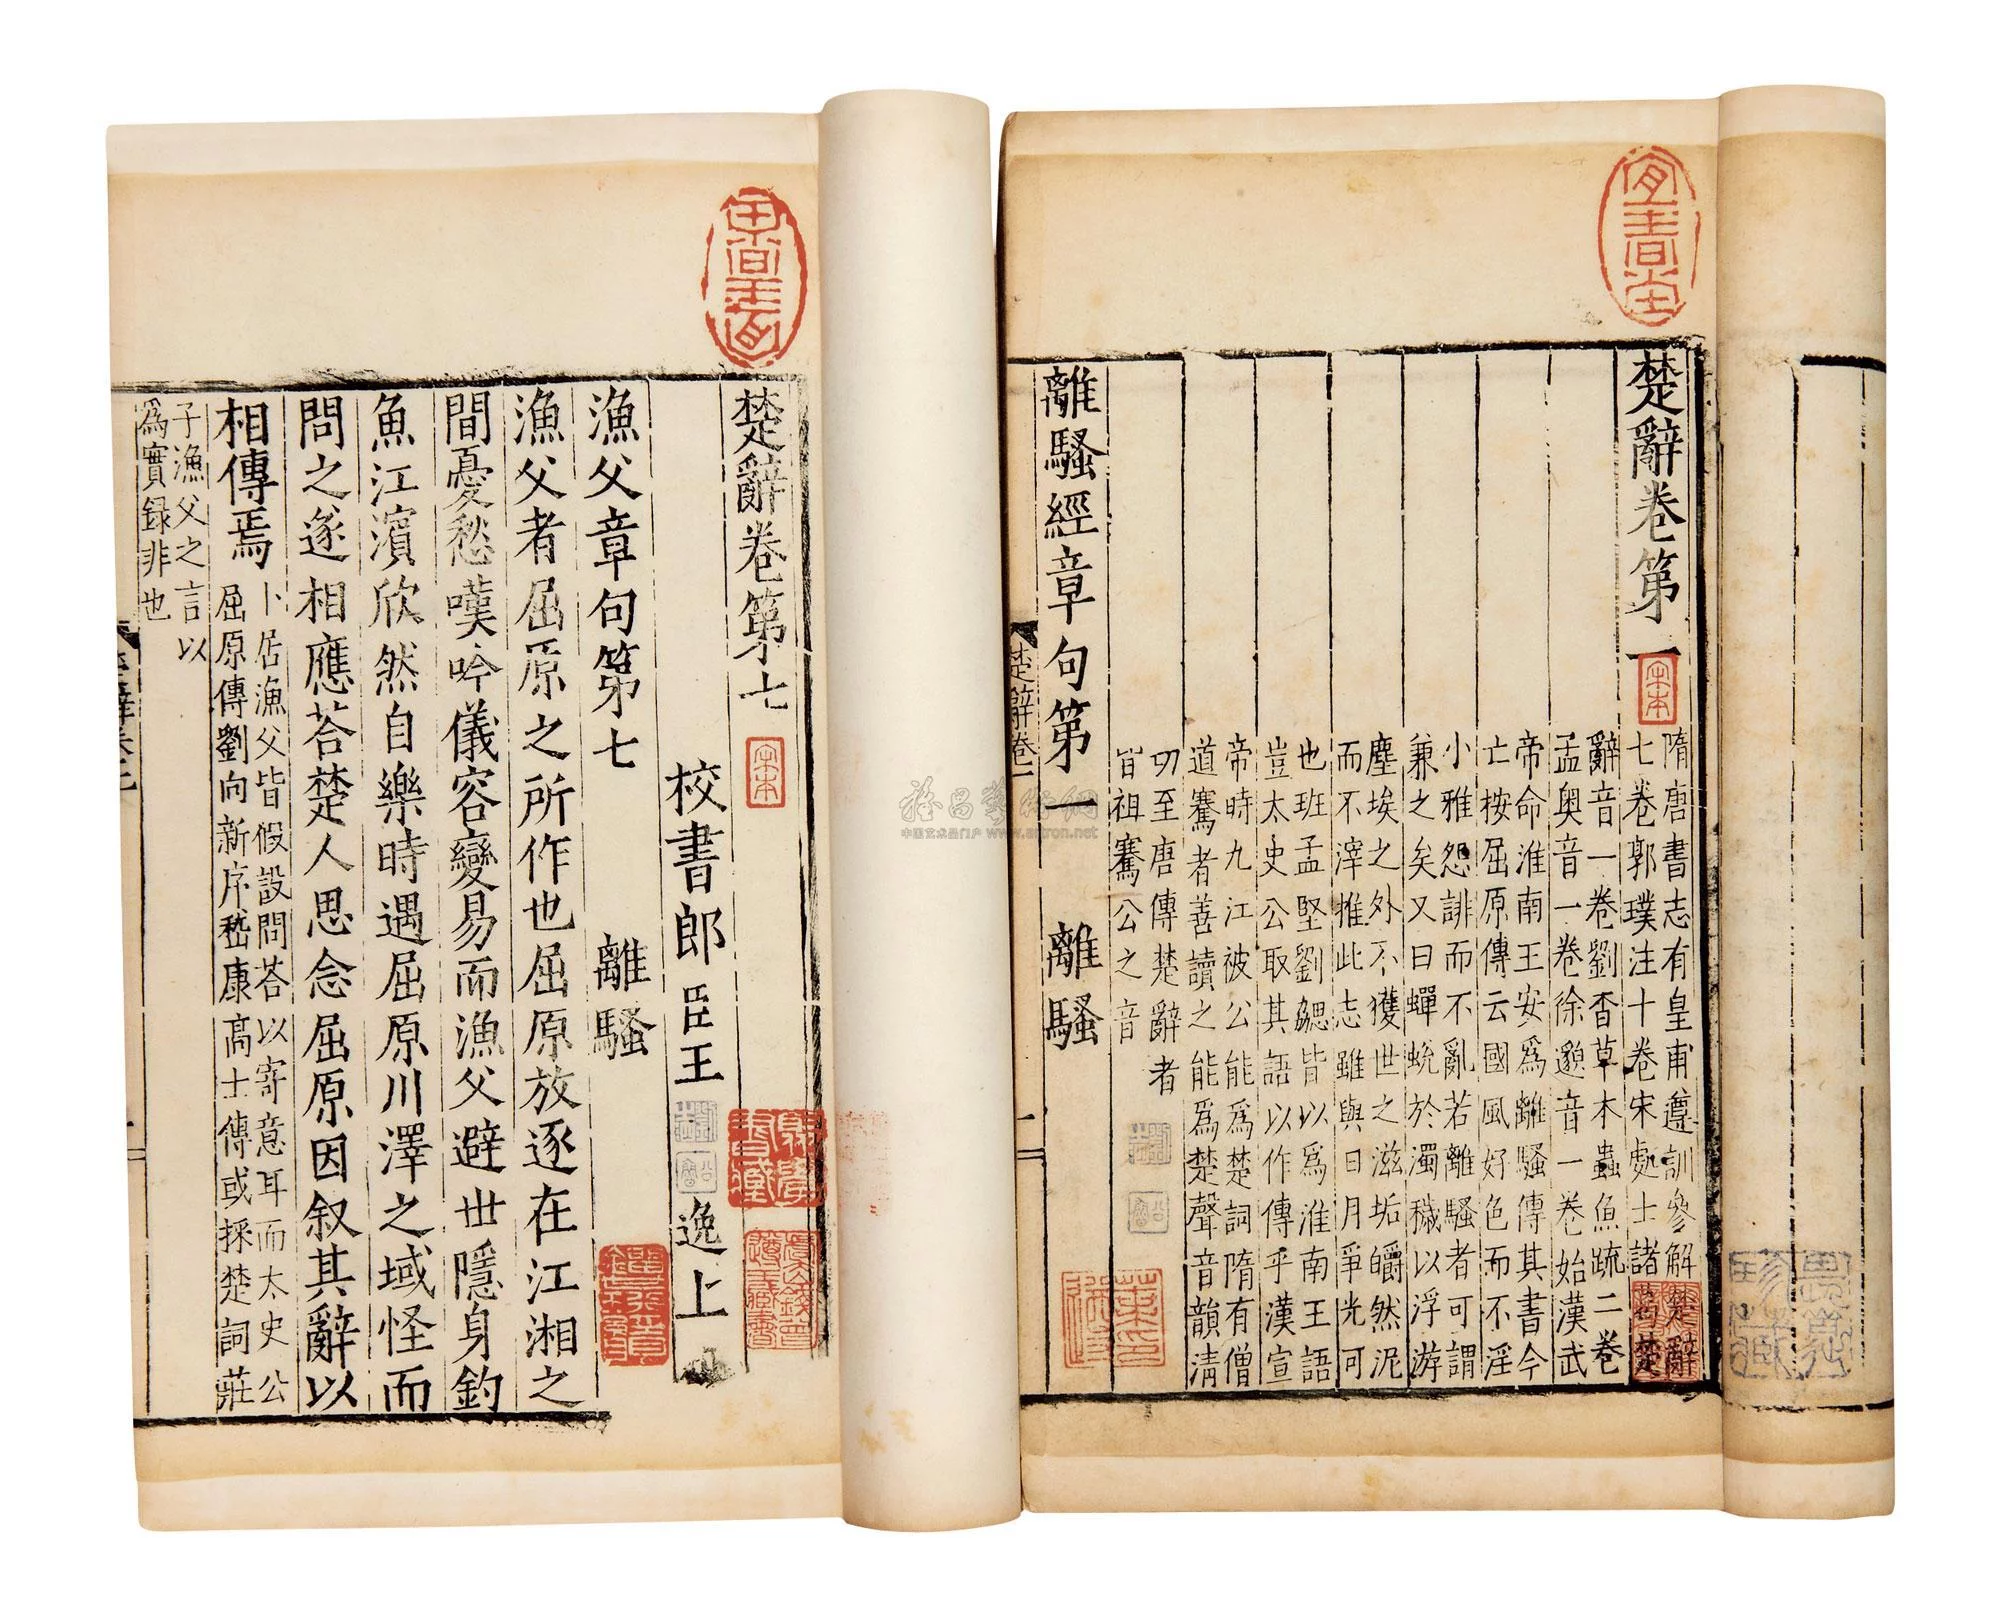 楚辭卷第一
隋唐書志有皇甫遵訓參解楚辭
七卷郭璞注十卷宋處士諸葛楚
辭音一卷劉杳草木蟲魚疏二卷
孟奥音一卷徐邈音一卷始漢武
帝命淮南王安爲離騷傳其書今
亡桉屈原傳云國風好色而不淫
小雅怨誹而不亂若離騷者可謂
兼之矣又曰蟬蛻於濁穢以浮游
塵埃之外不獲世之滋垢皭然泥
而不滓推此志雖與日月爭光可
也班孟堅劉勰皆以爲淮南王語
豈太史公取其語以作傳乎漢宣
帝時九江被公能爲楚詞隋有僧
道騫者善讀之能爲楚聲音韻清
切至唐傳楚辭者
皆祖騫公之音
離騷經章句第一 離騷
楚辭卷一
宋本
宜春堂
楚辭卷第七
宋本
校書郎臣王逸上
漁父章句第七 離騷
漁父者屈原之所作也屈原放逐在江湘之
間憂愁嘆吟儀容變易而漁父避世隱身釣
魚江濱欣然自樂時遇屈原川澤之域怪而
問之遂相應荅楚人思念屈原因叙其辭以
相傳焉
卜居漁父皆假設問荅以寄意耳而太史公
屈原傳劉向新序嵇康高士傳或採楚詞莊
子漁父之言以
為實録非也
中国艺术品门户 www.artron.net